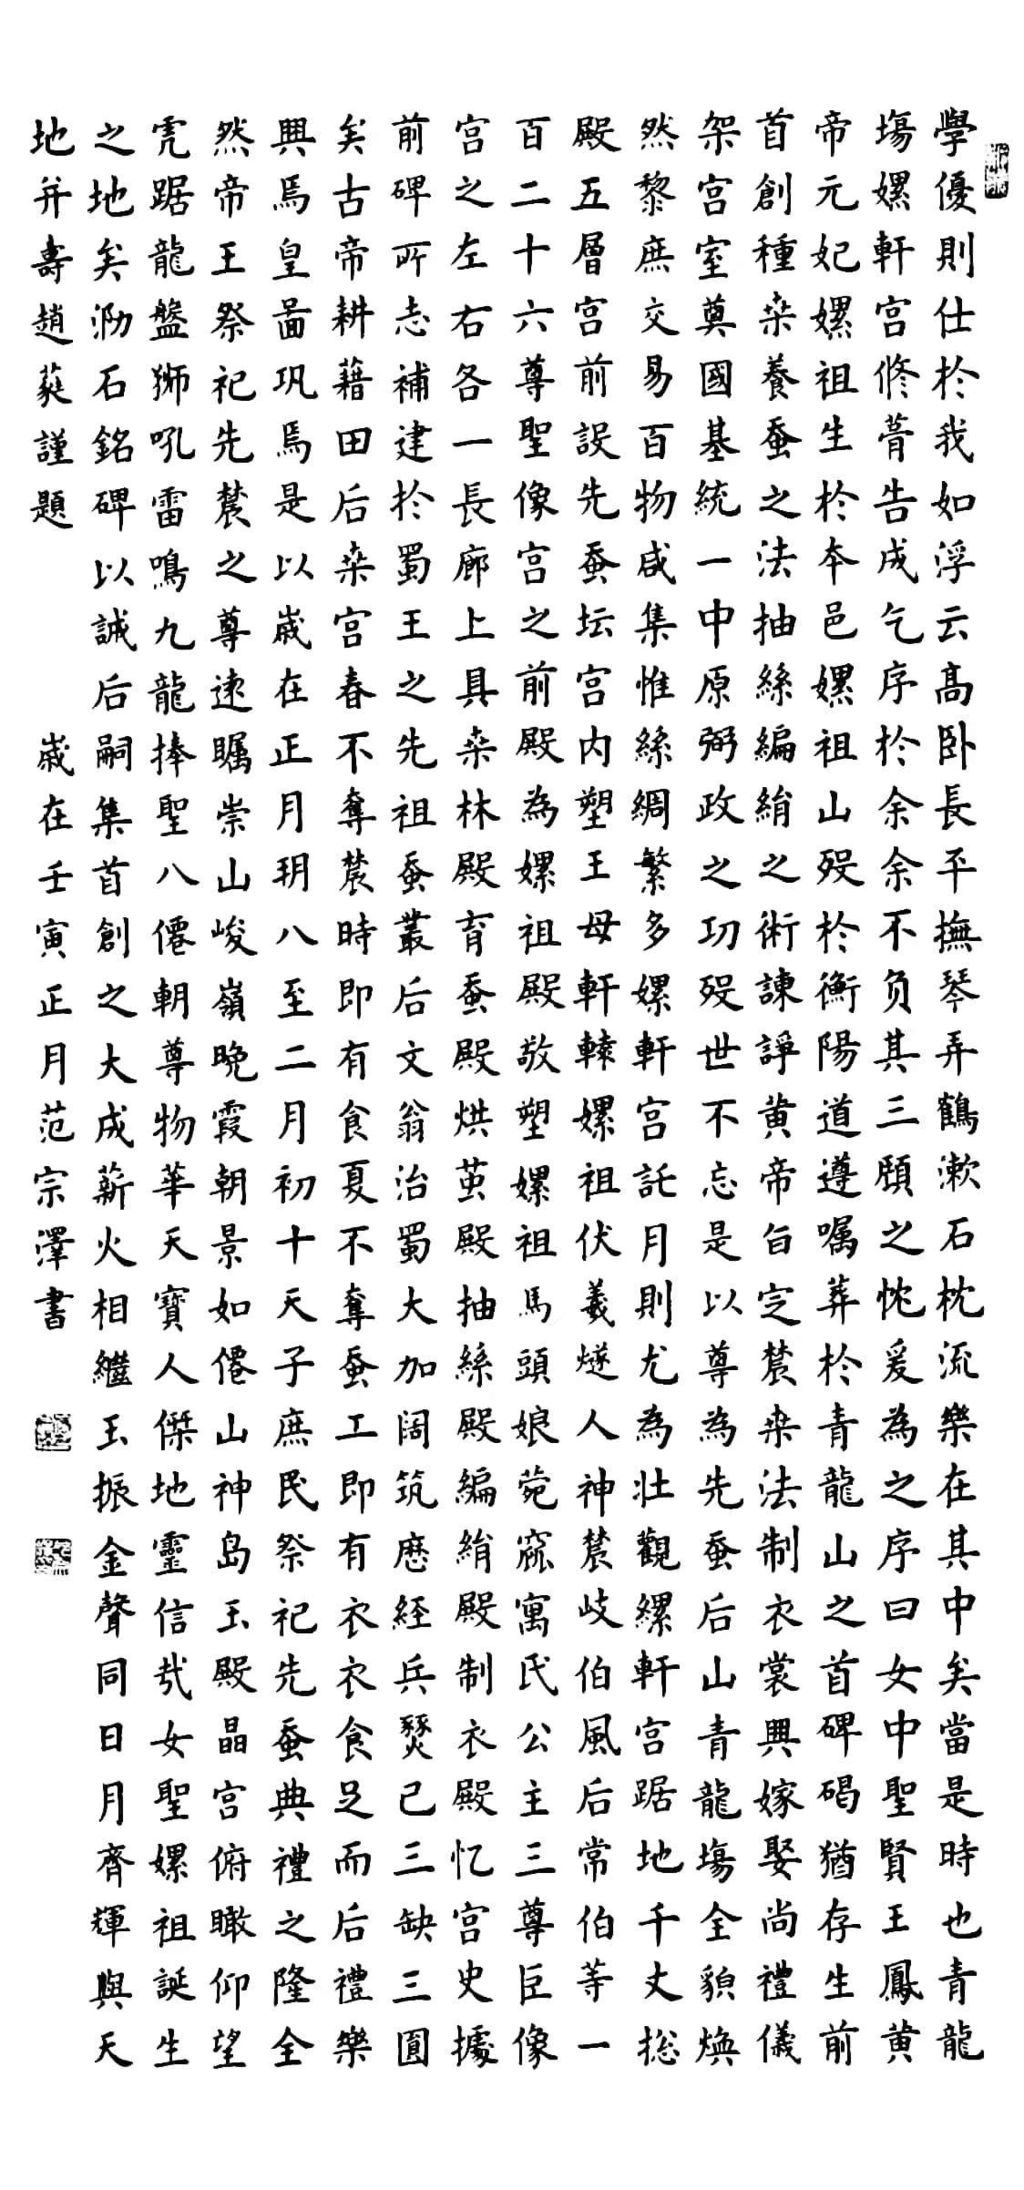 學優則仕於我如浮云高卧長平撫琴弄鶴漱石枕流樂在其中矣當是時也青龍
塲嫘軒宮修葺告成乞序於余余不负其三顧之忱爰為之序曰女中聖賢王鳳黄
帝元妃嫘祖生於本邑嫘祖山殁於衡陽道遵嘱葬於青龍山之首碑碣猶存生前
首創種桒養蚕之法抽絲編絹之術諫諍黄帝旨定農桒法制衣裳興嫁娶尚禮儀
架宮室奠國基統一中原弼政之功殁世不忘是以尊為先蚕后山青龍塲全貌焕
然黎庶交易百物咸集惟絲綢繁多嫘軒宮託月則尤為壮觀縲軒宮踞地千丈捴
殿五層宮前設先蚕坛宮内塑王母軒轅嫘祖伏羲燧人神農岐伯風后常伯等一
百二十六尊聖像宮之前殿為嫘祖殿敬塑嫘祖馬頭娘菀窳寓氏公主三尊臣像
宮之左右各一長廊上具桒林殿育蚕殿烘茧殿抽絲殿編絹殿制衣殿忆宮史據
前碑所志補建於蜀王之先祖蚕叢后文翁治蜀大加阔筑歷経兵燹已三缺三圓
矣古帝耕藉田后桒宮春不奪農時即有食夏不奪蚕工即有衣衣食足而后禮樂
興焉皇啚巩焉是以嵗在正月玥八至二月初十天子庶民祭祀先蚕典禮之隆全
然帝王祭祀先農之尊逺瞩崇山峻嶺晚霞朝景如僊山神岛玉殿晶宮俯瞰仰望
虎踞龍盤狮吼雷鳴九龍捧聖八僊朝尊物華天寶人傑地靈信哉女聖嫘祖誕生
之地矣泐石銘碑以誠后嗣集首創之大成薪火相繼玉振金聲同日月齊輝與天
地并壽趙蕤謹題 嵗在壬寅正月范宗澤書